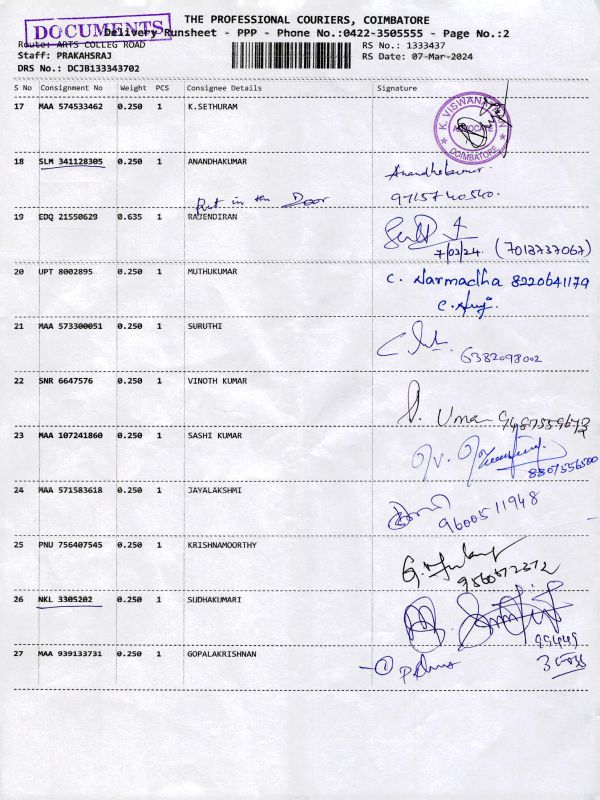 DOCUMENTS
THE PROFESSIONAL COURIERS, COIMBATORE
Delivery Runsheet - PPP - Phone No.:0422-3505555 - Page No.:2
Route: ARTS COLLEG ROAD
RS No.: 1333437
Staff: PRAKAHSRAJ
RS Date: 07-Mar-2024
DRS No.: DCJB133343702
S No Consignment No Weight PCS Consignee Details Signature
17 MAA 574533462 0.250 1 K.SETHURAM
K. VISWANATHAN
ADVOCATE
COIMBATORE
18 SLM 341128305 0.250 1 ANANDHAKUMAR
Anandhakumar
9715740540.
Put in the Door
19 EDQ 21550629 0.635 1 RAJENDIRAN
7/03/24. (7013737067)
20 UPT 8002895 0.250 1 MUTHUKUMAR
C. Narmadha 8220641179
21 MAA 573300051 0.250 1 SURUTHI
6382098002
22 SNR 6647576 0.250 1 VINOTH KUMAR
Uma 9487559673
23 MAA 107241860 0.250 1 SASHI KUMAR
8807556500
24 MAA 571583618 0.250 1 JAYALAKSHMI
9600511948
25 PNU 756407545 0.250 1 KRISHNAMOORTHY
9566572372
26 NKL 3305202 0.250 1 SUDHAKUMARI
99449
27 MAA 939133731 0.250 1 GOPALAKRISHNAN
1